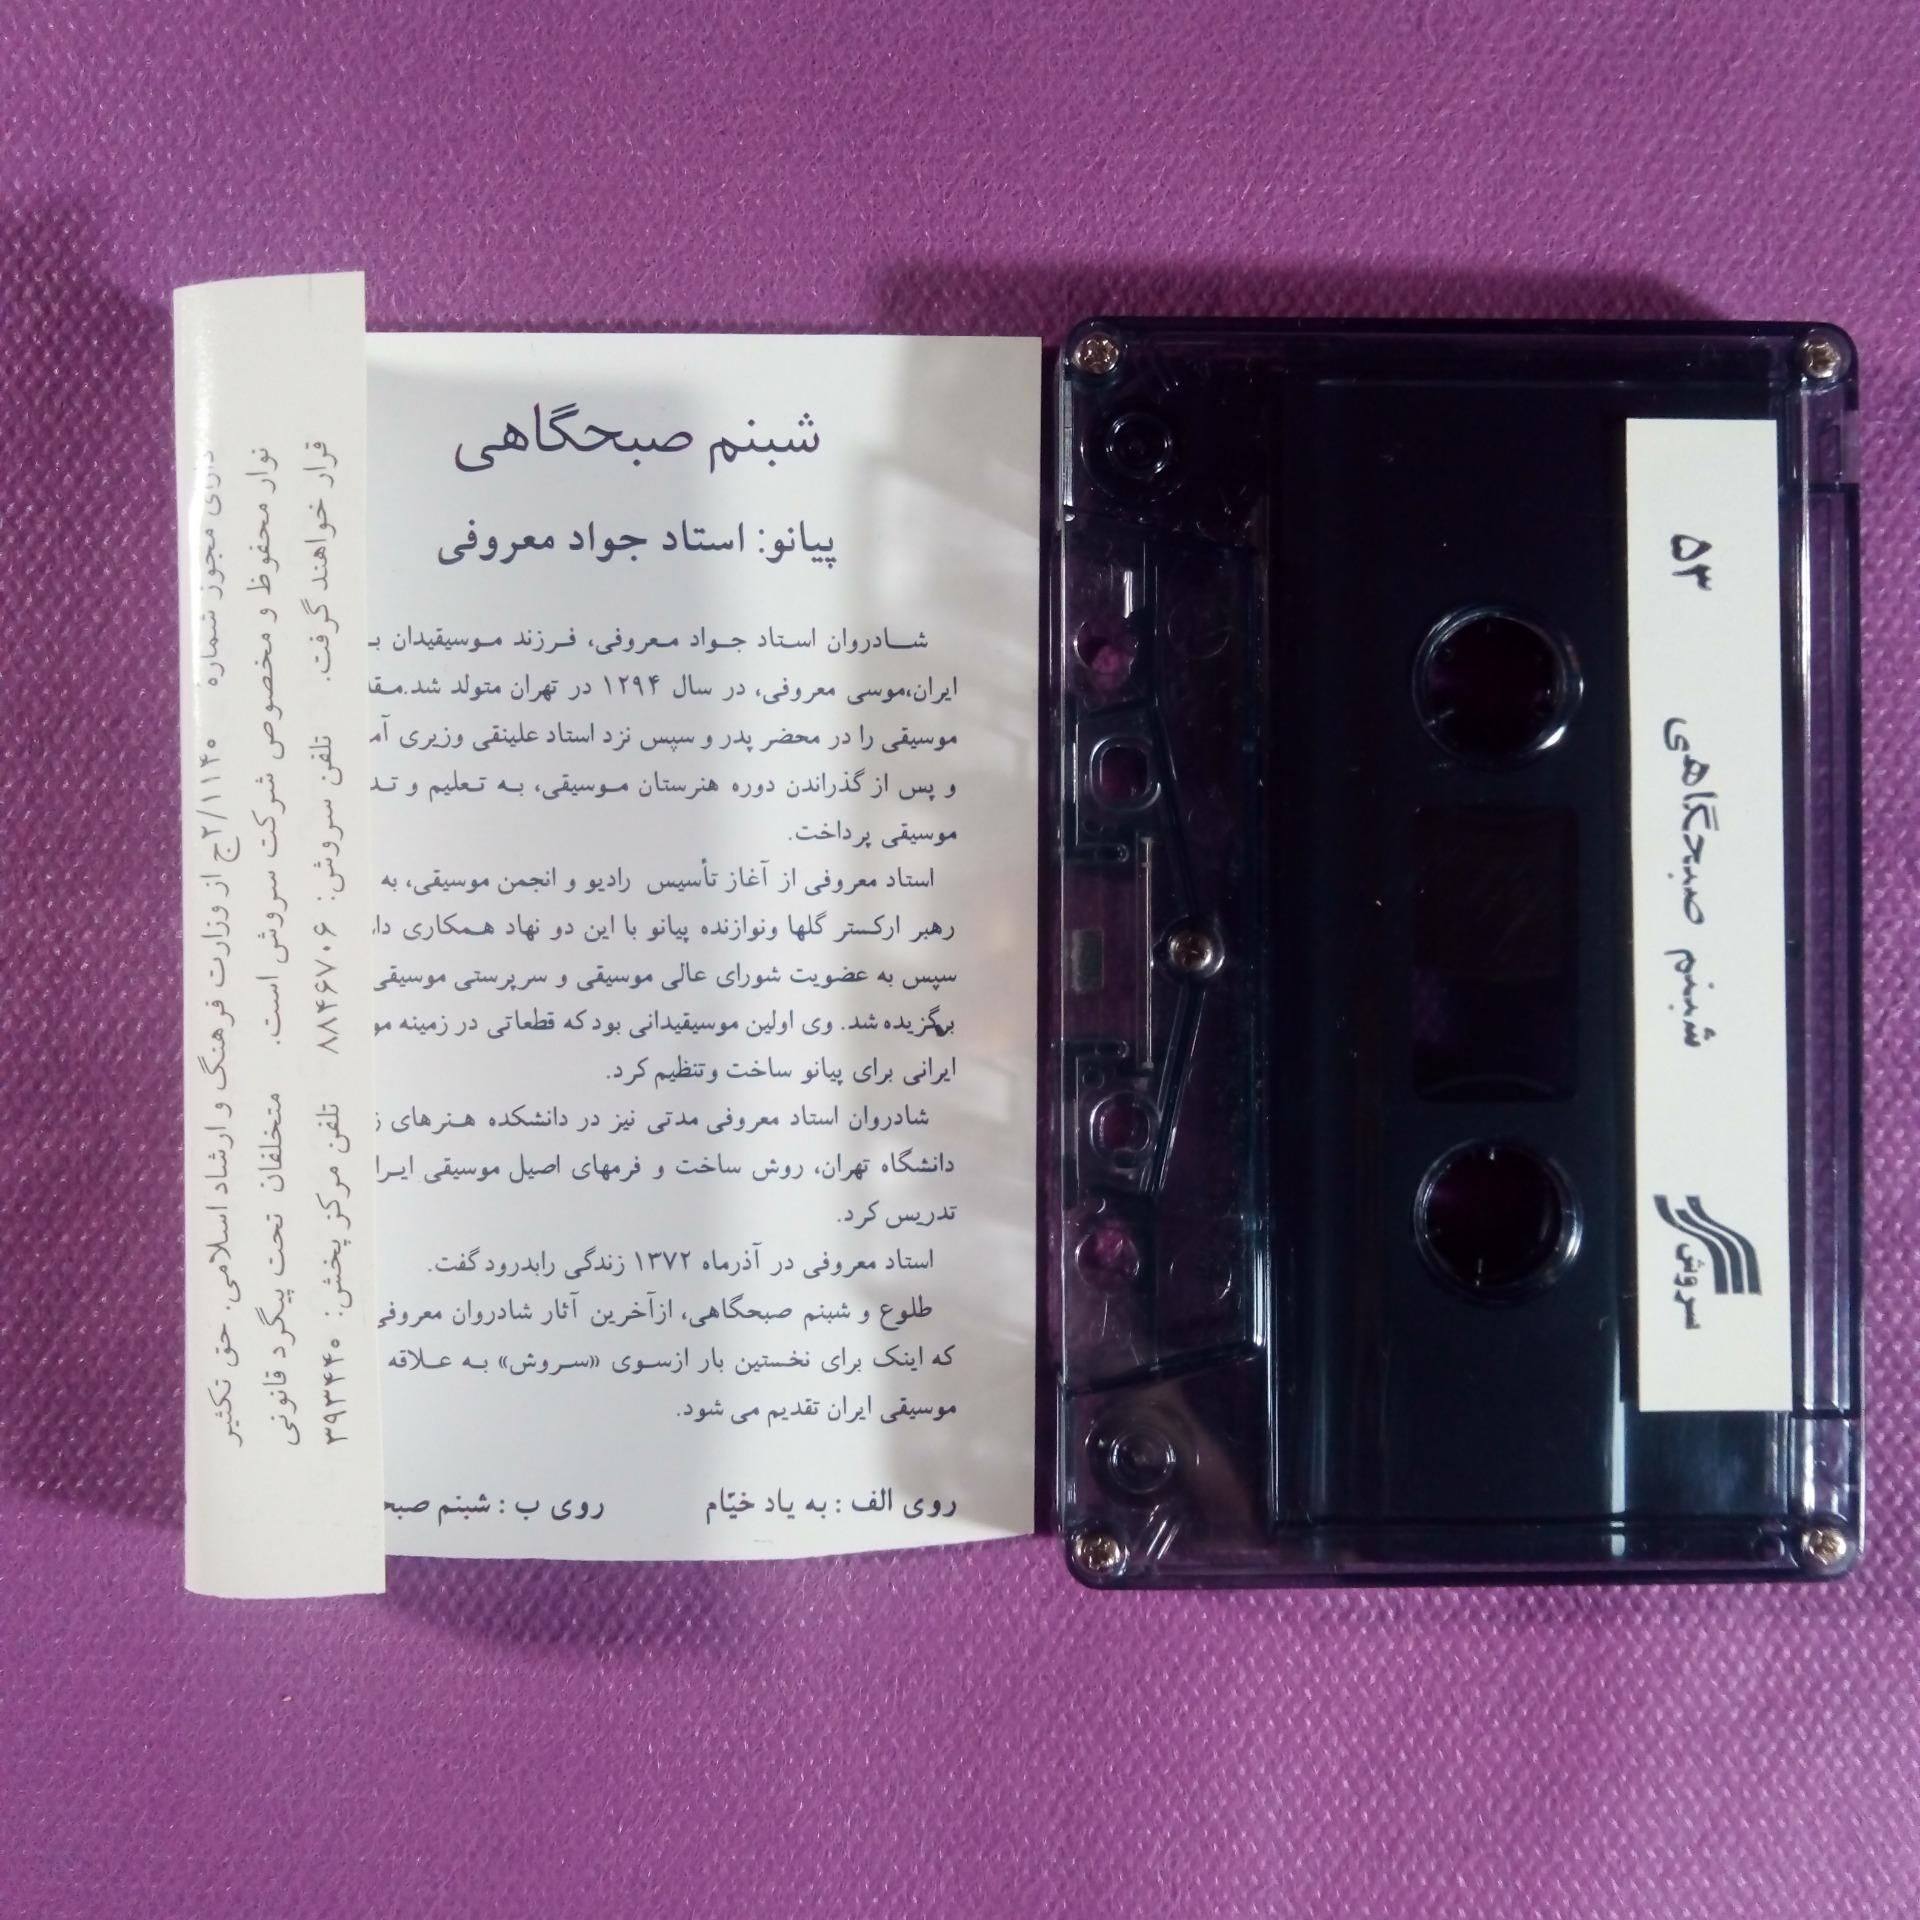 شبنم صبحگاهی
پیانو: استاد جواد معروفی
شادروان استاد جواد معروفی، فرزند موسیقیدان
ایران،موسی معروفی، در سال ۱۲۹۴ در تهران متولد شد.
موسیقی را در محضر پدر و سپس نزد استاد علینقی وزیری
و پس از گذراندن دوره هنرستان موسیقی، به تعلیم و
موسیقی پرداخت.
استاد معروفی از آغاز تأسیس رادیو و انجمن موسیقی، به
رهبر ارکستر گلها ونوازنده پیانو با این دو نهاد همکاری
سپس به عضویت شورای عالی موسیقی و سرپرستی موسیقی
برگزیده شد. وی اولین موسیقیدانی بود که قطعاتی در زمینه
ایرانی برای پیانو ساخت وتنظیم کرد.
شادروان استاد معروفی مدتی نیز در دانشکده هنرهای
دانشگاه تهران، روش ساخت و فرمهای اصیل موسیقی
تدریس کرد.
استاد معروفی در آذرماه ۱۳۷۲ زندگی رابدرود گفت.
طلوع و شبنم صبحگاهی، ازآخرین آثار شادروان معروفی
که اینک برای نخستین بار ازسوی «سروش» به علاقه
موسیقی ایران تقدیم می شود.
روی الف : به یاد خیّام روی ب : شبنم
دارای مجوز شماره ۲/۱۱۴۰ج از وزارت فرهنگ و ارشاد اسلامی. حق تکثیر
نوار محفوظ و مخصوص شرکت سروش است. متخلفان تحت پیگرد قانونی
قرار خواهند گرفت. تلفن سروش: ۸۸۴۶۷۰۶ تلفن مرکز پخش: ۳۹۳۴۴۰
۵۳
شبنم صبحگاهی
سروش